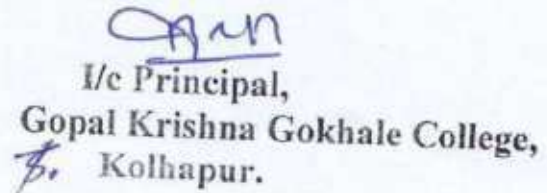 I/c Principal,
Gopal Krishna Gokhale College,
Kolhapur.